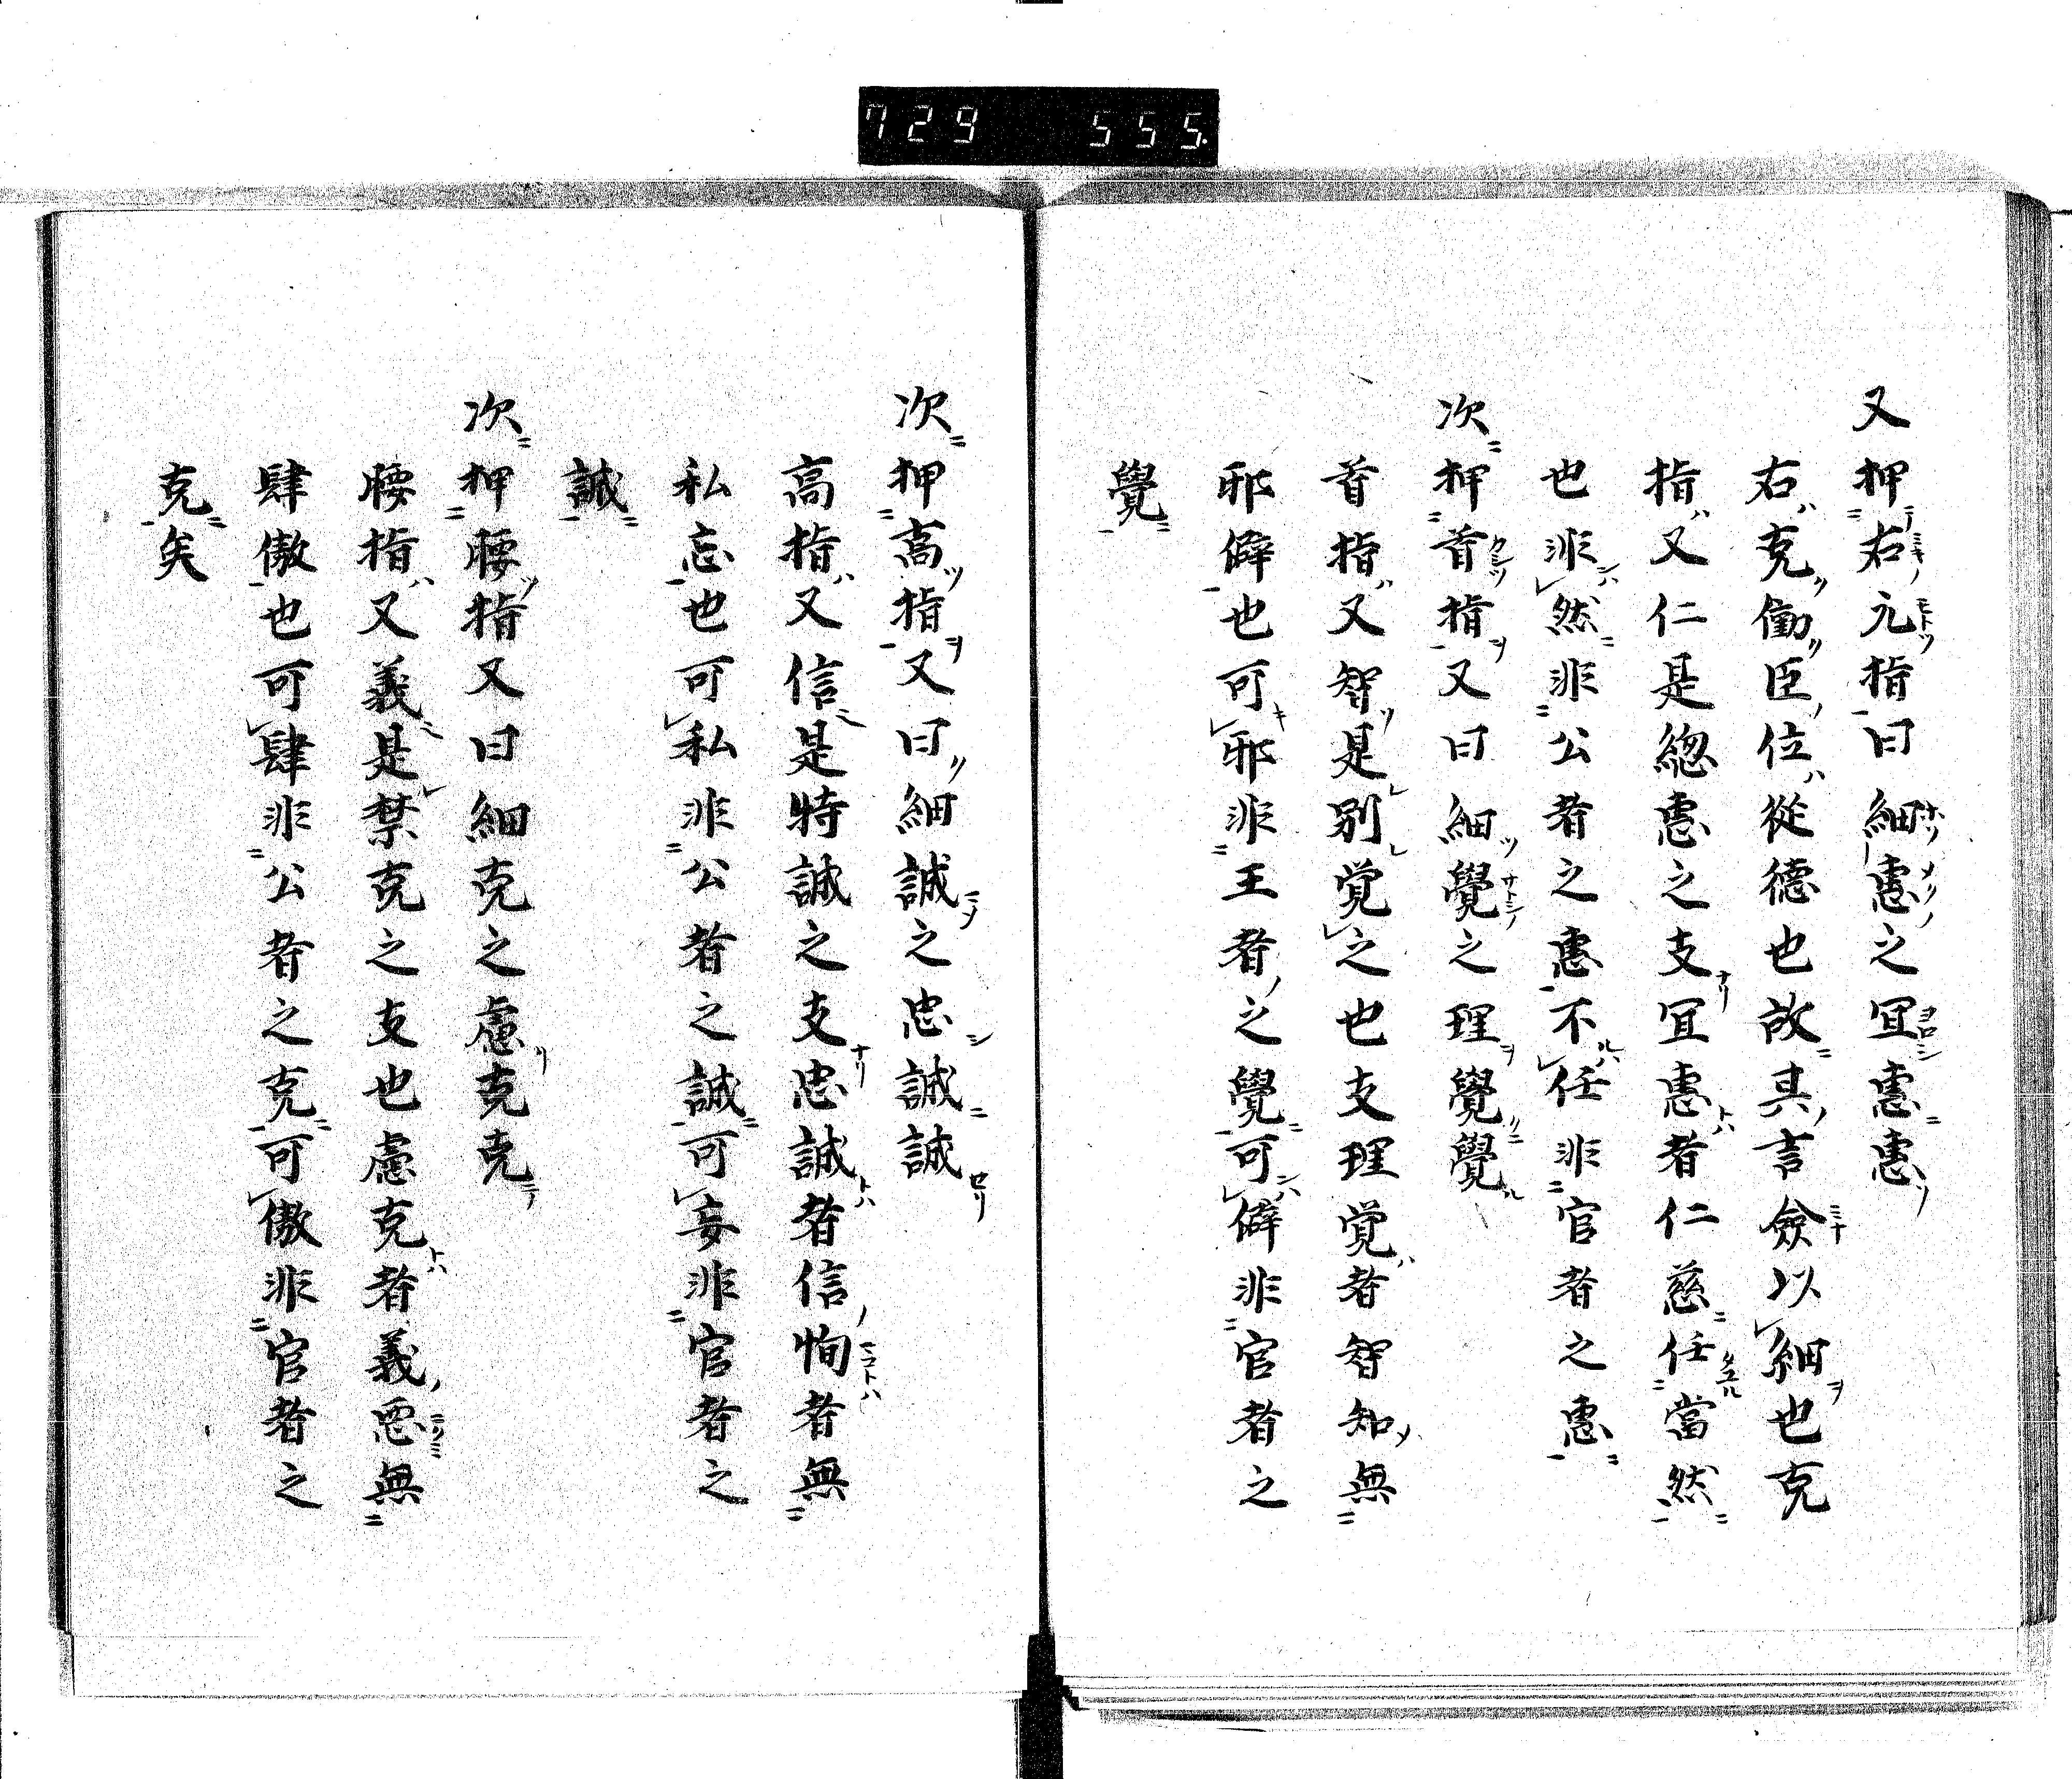 729 555
又押右元指曰細慮之宜慮惠
右克働臣位從德也故其言僉以細也克
指又仁是総惠之支宜惠者仁慈任當然
也非然非公者之惠不任非官者之惠
次押首指又曰細覺之理覺覺
首指又智是別覚之也支理覚者智知無
邪僻也可邪非王者之覺可僻非官者之
覺
次押高指又曰細誠之忠誠誠
高指又信是特誠之支忠誠者信恂者無
私忘也可私非公者之誠可妄非官者之
誠
次押腰指又曰細克之慮克克
腰指又義是禁克之支也慮克者義悪無
肆傲也可肆非公者之克可傲非官者之
克矣